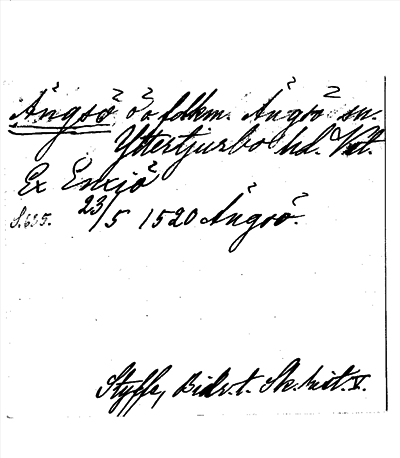 Ängsö ö o folkm. Ängsö sn.
Yttertjurbo hd. Vstm.
Ex Enxiö
S. 635. 23/5 1520 Ängsö.
Styffe, Bidr. t. Sk. hist. V.